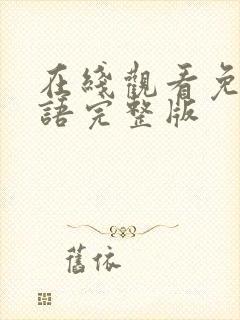 在綫觀看免
語完整版
舊依